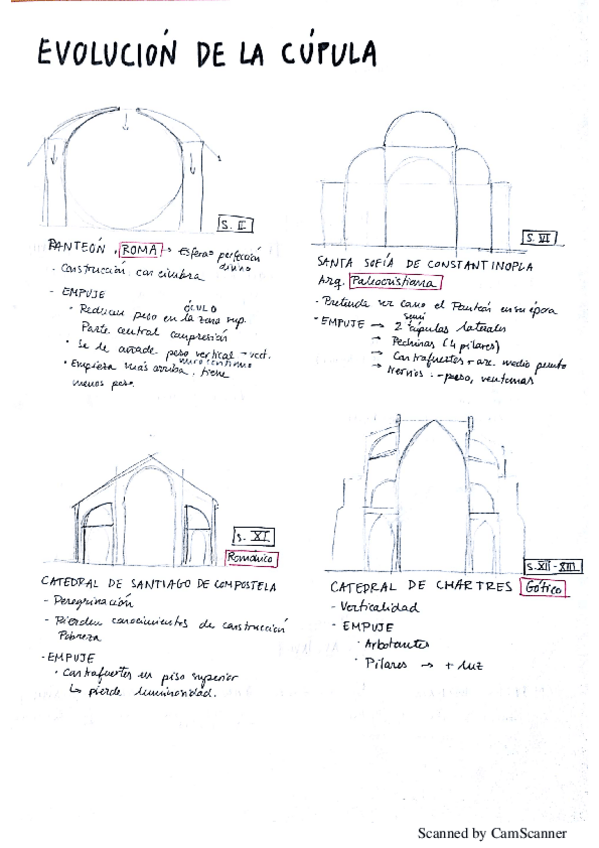 EVOLUCIÓN DE LA CÚPULA
S. II
PANTEÓN, ROMA → Esfera perfección
divino
- Construcción con cimbra
- EMPUJE
ÓCULO
• Reducen peso en la zona sup.
Parte central compresión
• Se le añade peso vertical → rect.
muro continuo
• Empieza más arriba, tiene
menos peso.
S. VI
SANTA SOFÍA DE CONSTANTINOPLA
Arq. Paleocristiana
- Pretende ser como el Panteón en su época
semi
- EMPUJE → 2 cúpulas laterales
→ Pechinas (4 pilares)
→ Contrafuertes + arc. medio punto
→ Nervios: - peso, ventanas
S. XI
Románico
CATEDRAL DE SANTIAGO DE COMPOSTELA
- Peregrinación
- Pierden conocimientos de construcción
Pobreza
- EMPUJE
• Contrafuertes en piso superior
↳ pierde luminosidad.
S. XII - XIII
CATEDRAL DE CHARTRES Gótico
- Verticalidad
- EMPUJE
• Arbotantes
• Pilares → + luz
Scanned by CamScanner